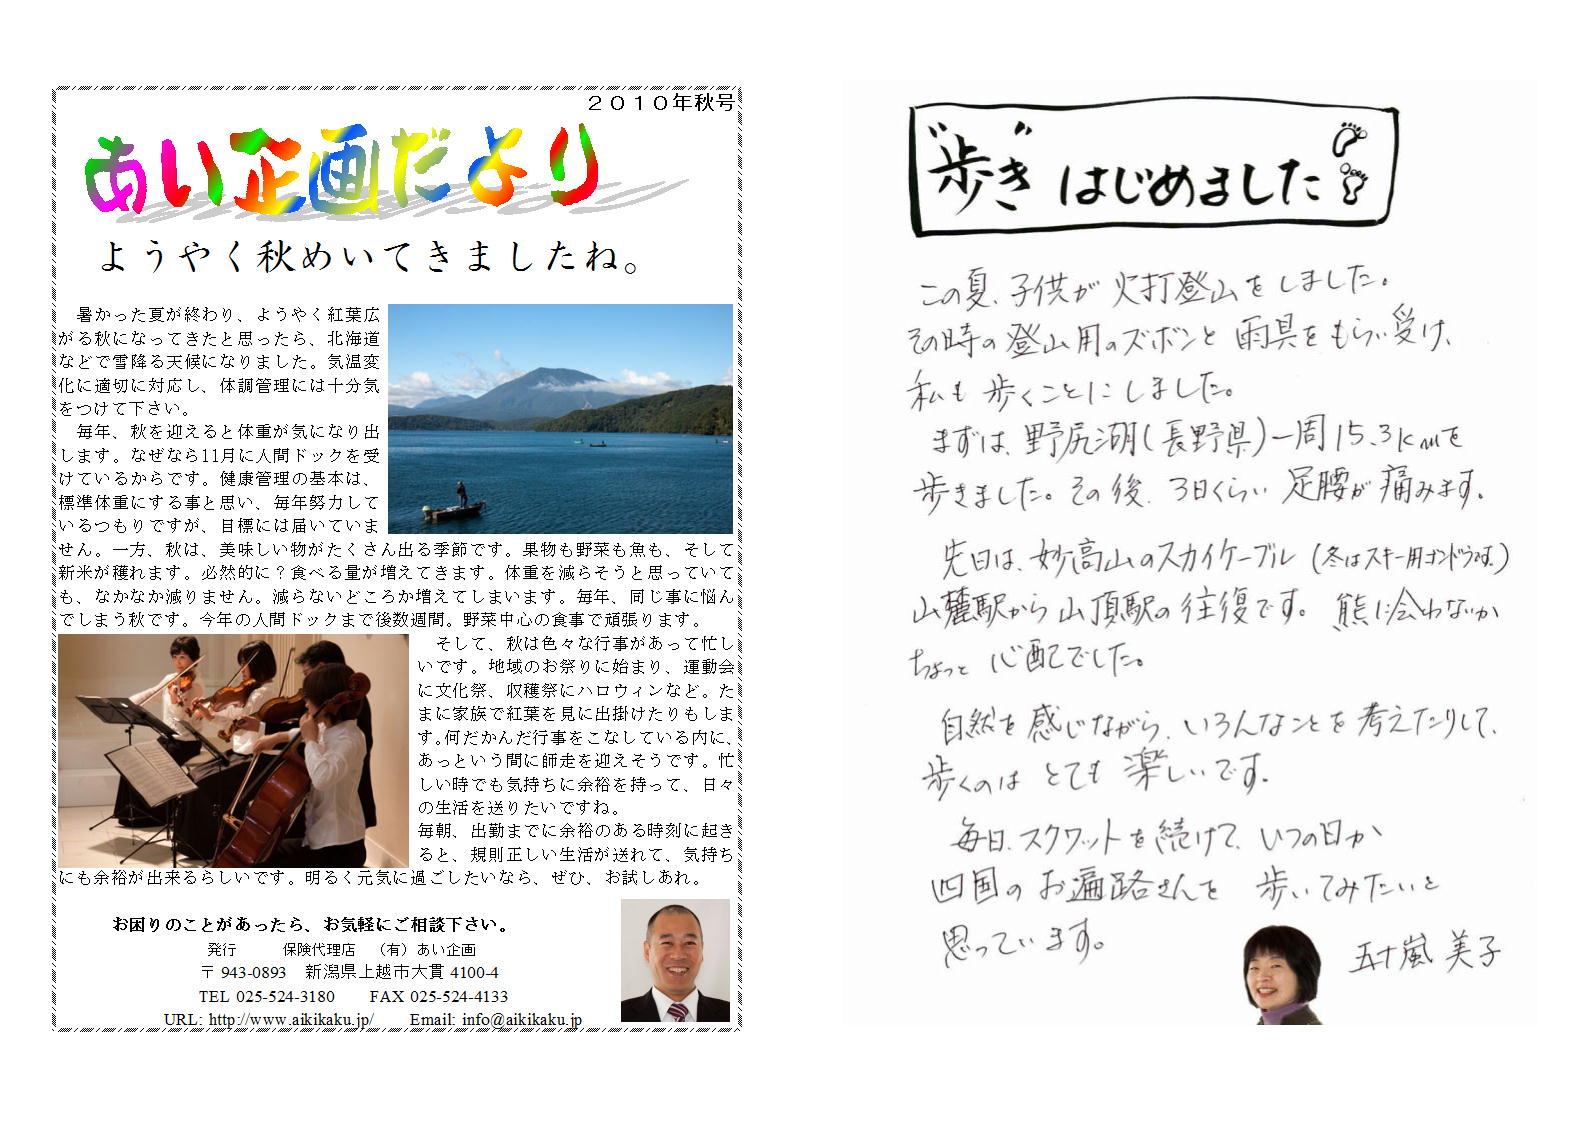 ２０１０年秋号
あい企画だより
ようやく秋めいてきましたね。
暑かった夏が終わり、ようやく紅葉広
がる秋になってきたと思ったら、北海道
などで雪降る天候になりました。気温変
化に適切に対応し、体調管理には十分気
をつけて下さい。
毎年、秋を迎えると体重が気になり出
します。なぜなら11月に人間ドックを受
けているからです。健康管理の基本は、
標準体重にする事と思い、毎年努力して
いるつもりですが、目標には届いていま
せん。一方、秋は、美味しい物がたくさん出る季節です。果物も野菜も魚も、そして
新米が穫れます。必然的に？食べる量が増えてきます。体重を減らそうと思っていて
も、なかなか減りません。減らないどころか増えてしまいます。毎年、同じ事に悩ん
でしまう秋です。今年の人間ドックまで後数週間。野菜中心の食事で頑張ります。
そして、秋は色々な行事があって忙し
いです。地域のお祭りに始まり、運動会
に文化祭、収穫祭にハロウィンなど。た
まに家族で紅葉を見に出掛けたりもしま
す。何だかんだ行事をこなしている内に、
あっという間に師走を迎えそうです。忙
しい時でも気持ちに余裕を持って、日々
の生活を送りたいですね。
毎朝、出勤までに余裕のある時刻に起き
ると、規則正しい生活が送れて、気持ち
にも余裕が出来るらしいです。明るく元気に過ごしたいなら、ぜひ、お試しあれ。
お困りのことがあったら、お気軽にご相談下さい。
発行　　保険代理店　（有）あい企画
〒943-0893　新潟県上越市大貫 4100-4
TEL 025-524-3180　　FAX 025-524-4133
URL: http://www.aikikaku.jp/　　Email: info@aikikaku.jp
"歩き" はじめました
この夏、子供が火打登山をしました。
その時の登山用のズボンと雨具をもらい受け、
私も歩くことにしました。
まずは、野尻湖(長野県)一周15.3kmを
歩きました。その後、3日くらい足腰が痛みます。
先日は、妙高山のスカイケーブル(冬はスキー用ゴンドラです。)
山麓駅から山頂駅の往復です。熊に会わないか
ちょっと心配でした。
自然を感じながら、いろんなことを考えたりして、
歩くのはとても楽しいです。
毎日、スクワットを続けて、いつの日か
四国のお遍路さんを歩いてみたいと
思っています。
五十嵐 美子